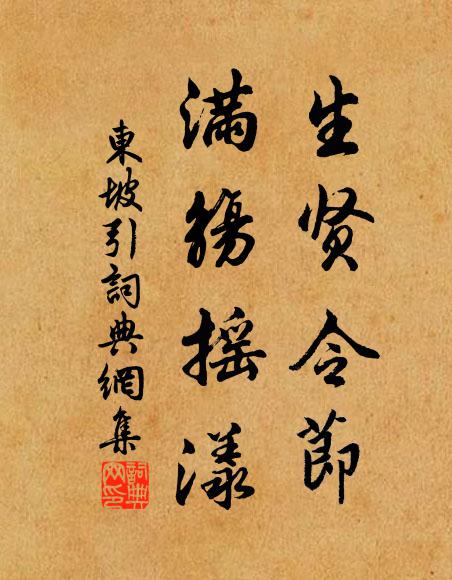 生贤令節
满觞摇漾
東坡引詞典網集
詞典网印